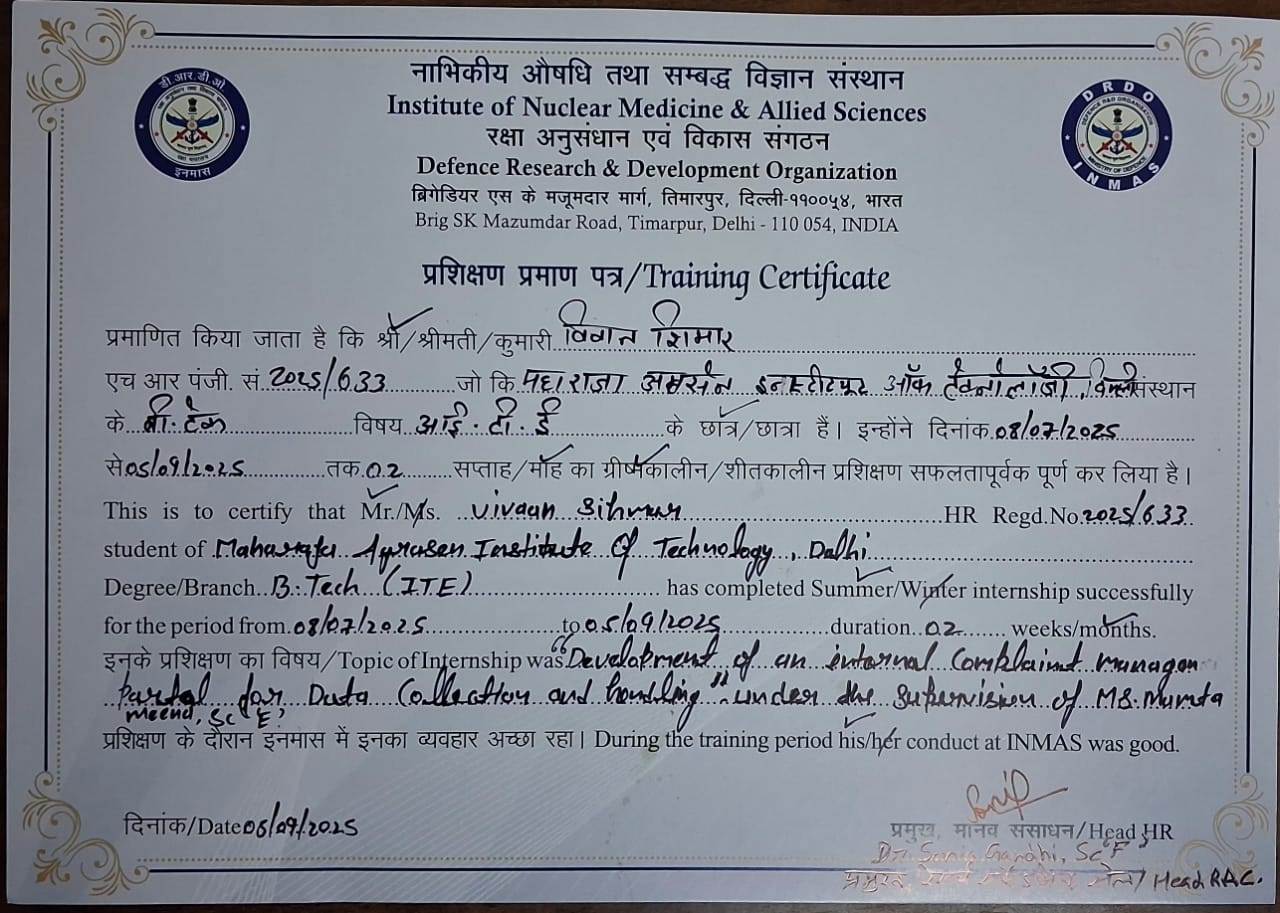 डी.आर.डी.ओ
इनमास
DRDO
DEFENCE R&D ORGANISATION
MINISTRY OF DEFENCE
INMAS
नाभिकीय औषधि तथा सम्बद्ध विज्ञान संस्थान
Institute of Nuclear Medicine & Allied Sciences
रक्षा अनुसंधान एवं विकास संगठन
Defence Research & Development Organization
ब्रिगेडियर एस के मजूमदार मार्ग, तिमारपुर, दिल्ली-११००५४, भारत
Brig SK Mazumdar Road, Timarpur, Delhi - 110 054, INDIA
प्रशिक्षण प्रमाण पत्र/Training Certificate
प्रमाणित किया जाता है कि श्री/श्रीमती/कुमारी विवान
एच आर पंजी. सं. 2025/633 जो कि महाराजा अग्रसेन इन्स्टीट्यूट ऑफ टेक्नोलॉजी, संस्थान
के बी.टेक विषय आई.टी.ई के छात्र/छात्रा हैं। इन्होंने दिनांक 08/07/2025
से 05/09/2025 तक 02 सप्ताह/माँह का ग्रीष्मकालीन/शीतकालीन प्रशिक्षण सफलतापूर्वक पूर्ण कर लिया है।
This is to certify that Mr./Ms. Vivaan HR Regd.No. 2025/633
student of Maharaja Agrasen Institute Of Technology, Delhi
Degree/Branch B.Tech (ITE) has completed Summer/Winter internship successfully
for the period from 08/07/2025 to 05/09/2025 duration 02 weeks/months.
इनके प्रशिक्षण का विषय/Topic of Internship was "Development of an internal Complaint
Portal for Data Collection and handling" under the supervision of MS. Mamta
Meena, Sc 'E'
प्रशिक्षण के दौरान इनमास में इनका व्यवहार अच्छा रहा। During the training period his/her conduct at INMAS was good.
दिनांक/Date 06/09/2025
प्रमुख, मानव संसाधन/Head HR
Gandhi, Sc 'F'
Head RAC.